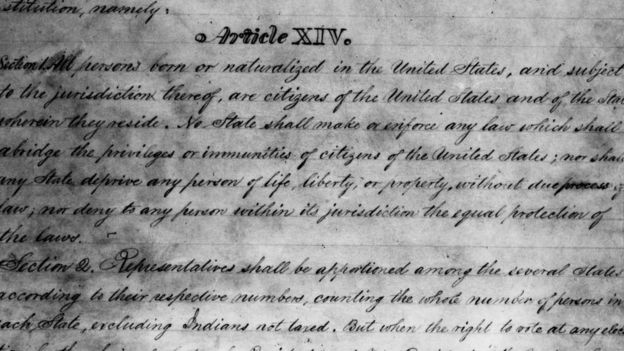 stitution, namely:
Article XIV.
Section 1. All persons born or naturalized in the United States, and subject
to the jurisdiction thereof, are citizens of the United States and of the Stat
wherein they reside. No State shall make or enforce any law which shall
abridge the privileges or immunities of citizens of the United States; nor shall
any State deprive any person of life, liberty, or property, without due process of
law; nor deny to any person within its jurisdiction the equal protection of
the laws.
Section 2. Representatives shall be apportioned among the several States
according to their respective numbers, counting the whole number of persons in
each State, excluding Indians not taxed. But when the right to vote at any elect